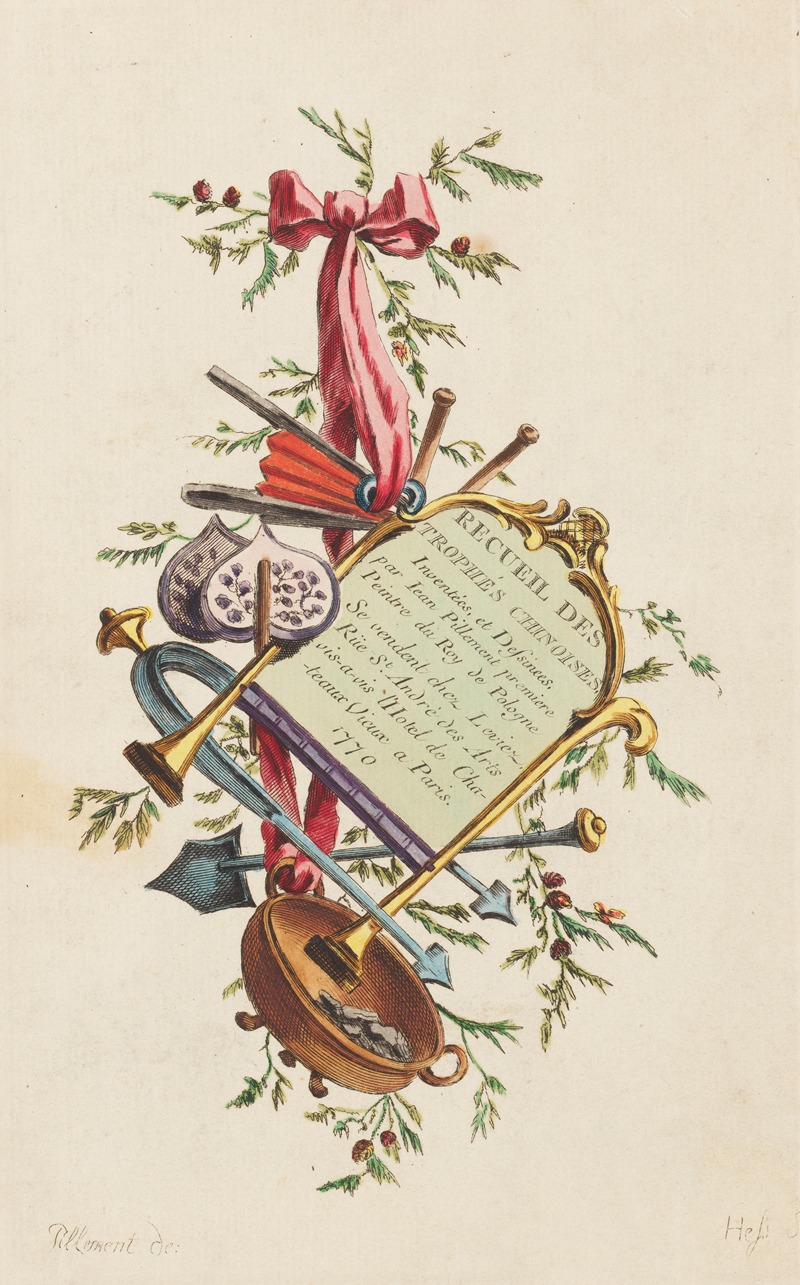 RECUEIL DES
TROPHÉS CHINOISES,
Inventées, et Deſsinées,
par Jean Pillement premiere
Peintre du Roy de Pologne
Se vendent chez Leviez,
Rüe St. André des Arts
vis-a-vis l'Hotel de Cha-
teaux Vieux a Paris.
1770
Pillement de:
Heſs